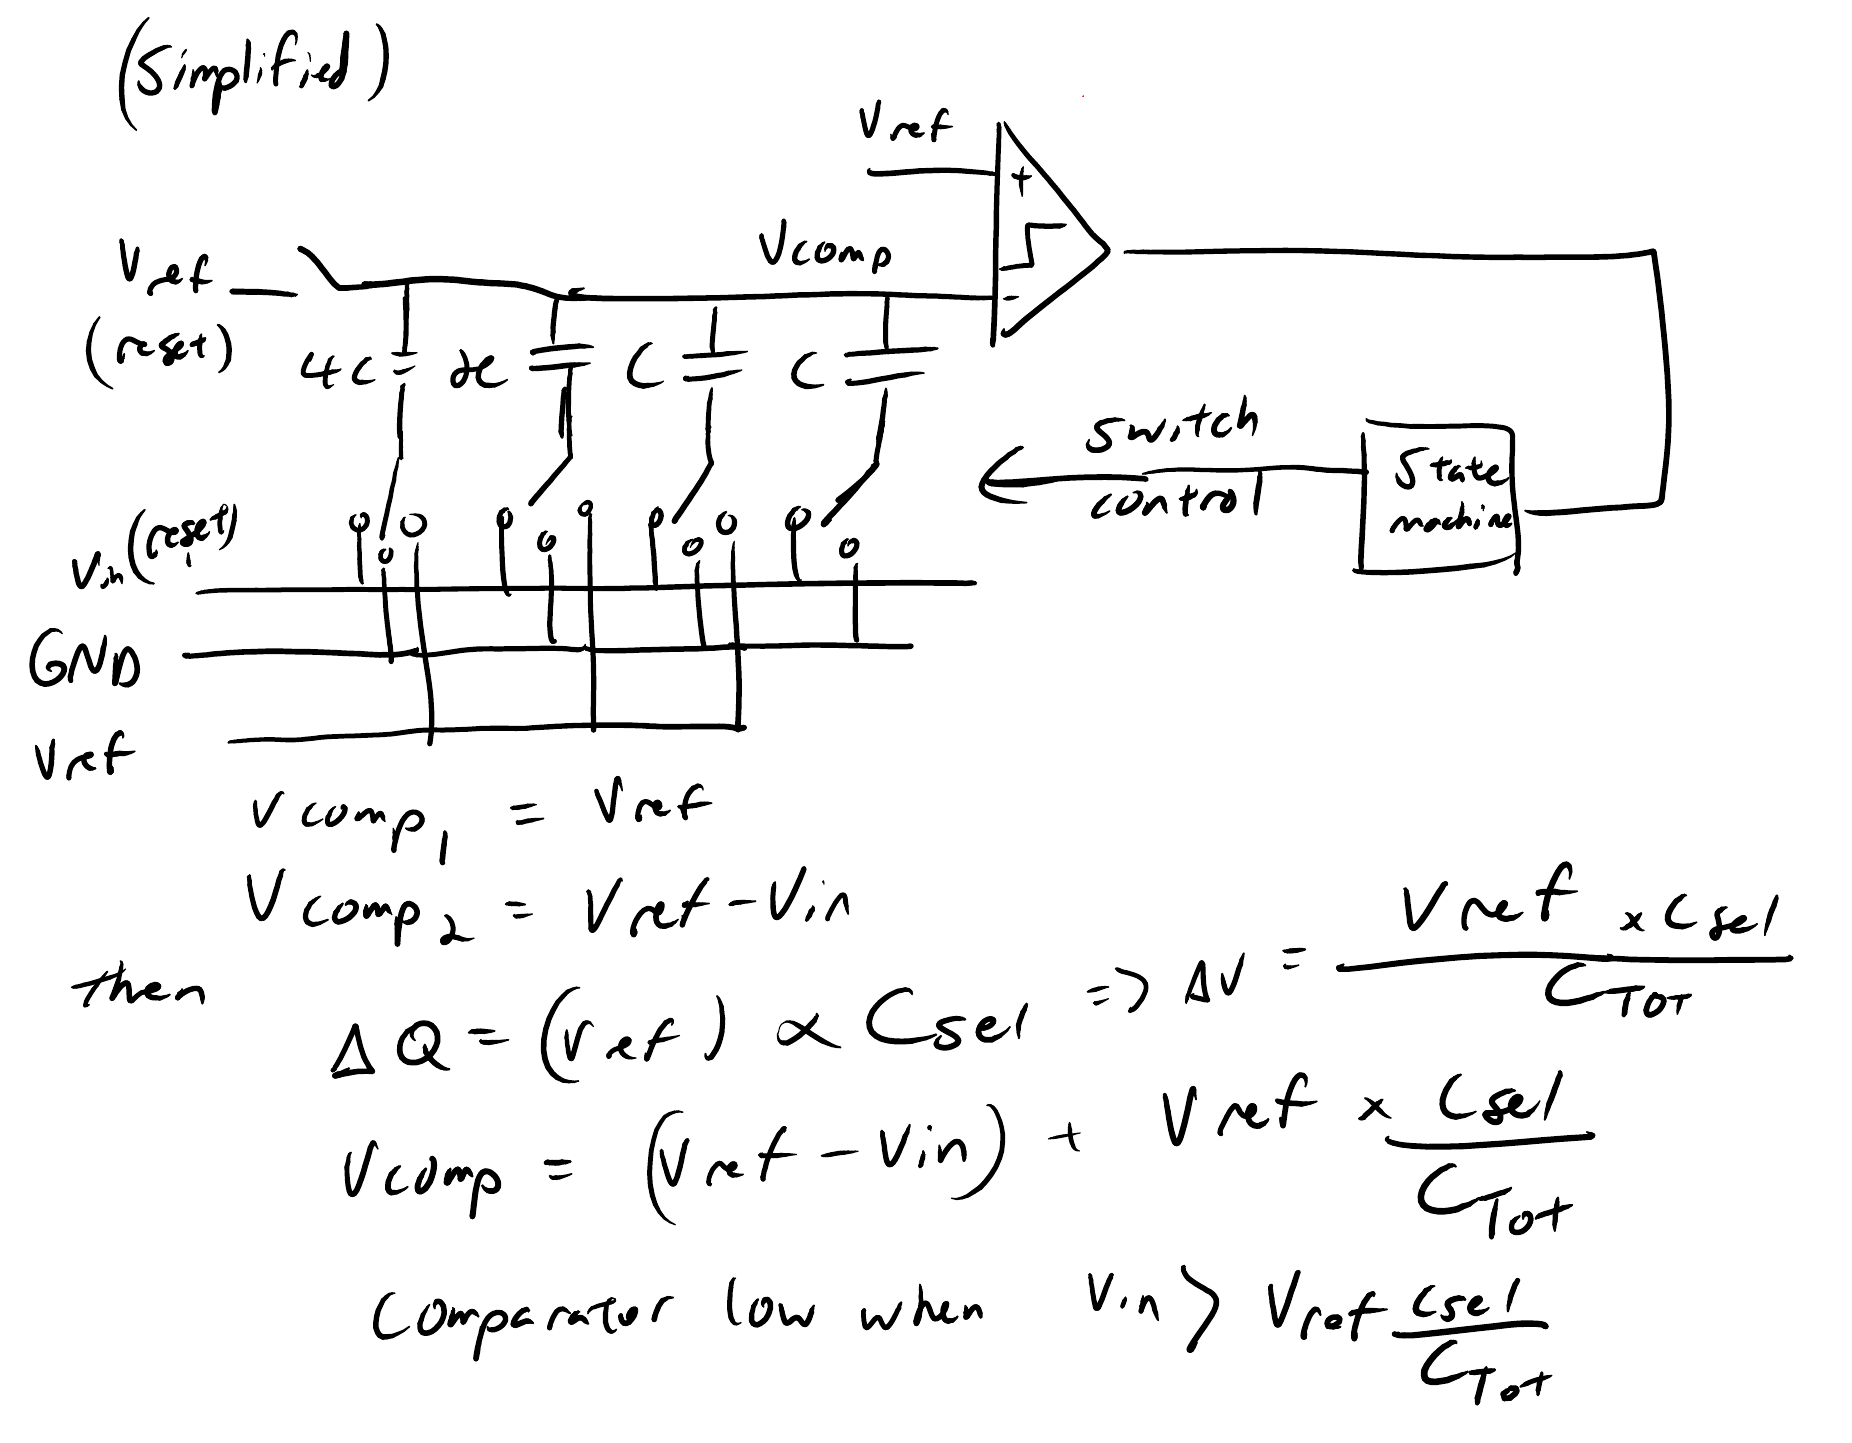 (Simplified)
Vref
+
Vcomp
-
Vref
(reset)
4C 2C C C
Switch
control
State
machine
Vin (reset)
GND
Vref
Vcomp1 = Vref
Vcomp2 = Vref - Vin
then
ΔQ = (Vref) ∝ Csel => ΔV = Vref × Csel / CTOT
Vcomp = (Vref - Vin) + Vref × Csel / CTot
Comparator low when Vin > Vref Csel / CTot